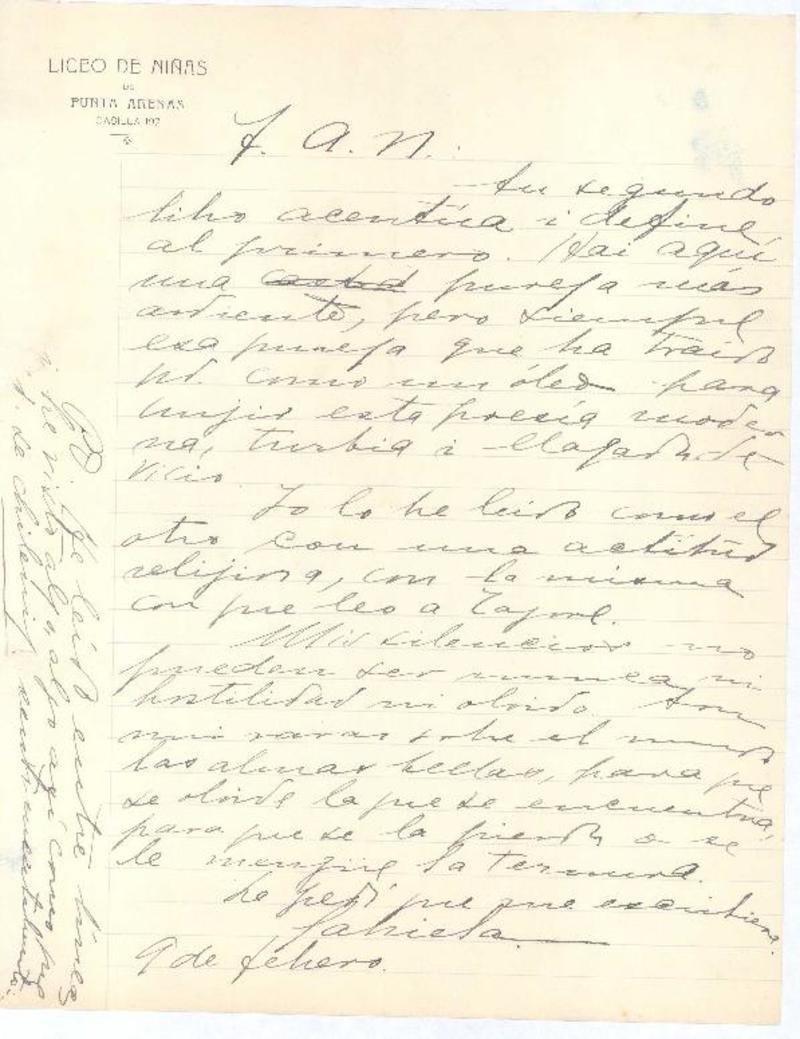 LICEO DE NIÑAS
DE
PUNTA ARENAS
CASILLA 197
F. A. N.:
Su segundo
libro acentúa i define
al primero. Hai aquí
una pureza más
ardiente, pero siempre
esa pureza que ha traido
Ud. como un óleo para
unjir esta poesía moder
na, turbia i llagada de
vicio.
Yo lo he leido como el
otro con una actitud
relijiosa, con la misma
con que leo a Tagore.
Mis silencios no
pueden ser nunca ni
hostilidad ni olvido. Son
mui raras sobre el mundo
las almas bellas, para que
se olvide la que se encuentra,
para que se la pierda o se
le mengüe la ternura.
Le pedí que me escribiera.
Gabriela.
9 de febrero.
PD He leido entre líneas
i he visto algo, algo así como que
U. de chileniza sentimentalmente.